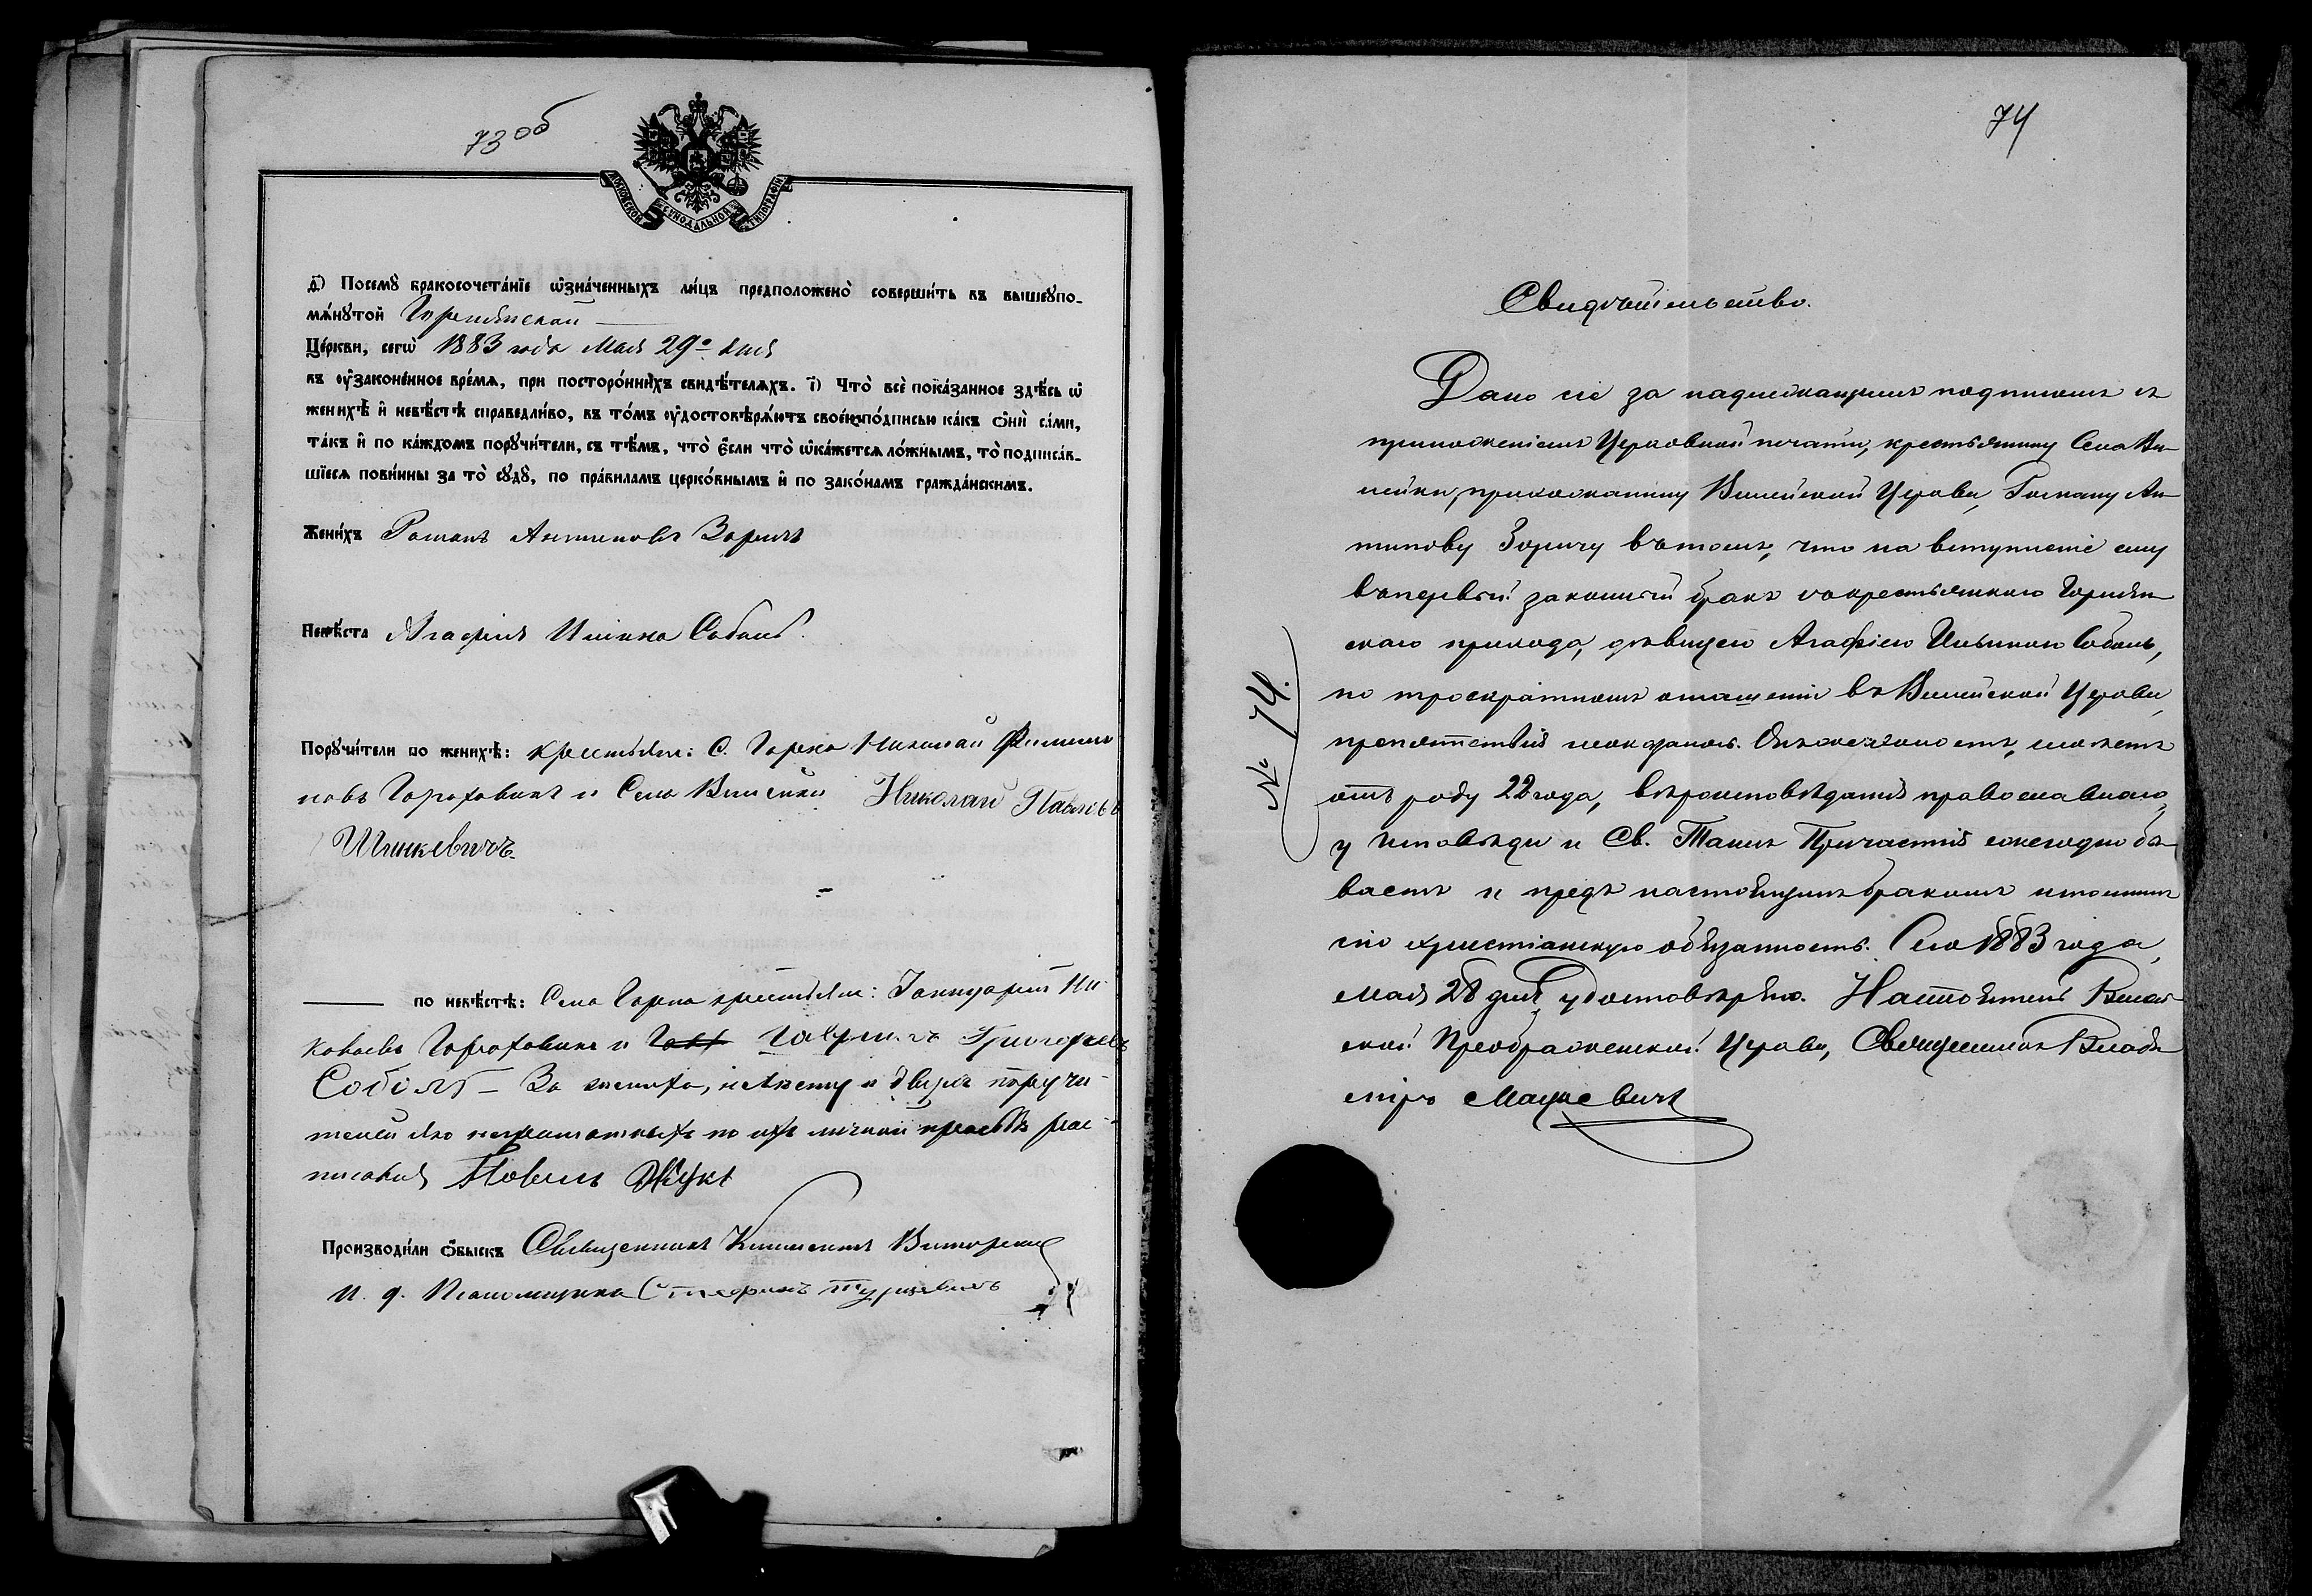 73 об
МОСКОВСКОЙ СѴНОДАЛЬНОЙ ТИПОГРАФІИ
д҃) Посемꙋ̀ бракосочета́нїе ѡ҆зна́ченныхъ ли́цъ предположено̀ соверши́ть въ вышеꙋпо-
мѧ́нꙋтой Горнянской
Це́ркви, сегѡ̀ 1883 года Мая 29го дня
въ ᲂу҆зако́ненное вре́мѧ, при посторо́ннихъ свидѣ́телѧхъ. і҃) Что̀ всѐ пока́занное здѣ́сь ѡ҆
женихѣ̀ и҆ невѣ́стѣ справедли́во, въ то́мъ ᲂу҆достовѣрѧ́ютъ свое́ю по́дписью ка́къ ѻ҆нѝ са́ми,
та́къ и҆ по ка́ждомъ порꙋчи́тели, съ тѣ́мъ, что̀ є҆́сли что̀ ѡ҆ка́жетсѧ ло́жнымъ, то̀ подписа́в-
шїесѧ пови́нны за то̀ сꙋдꙋ̀, по пра́виламъ церко́внымъ и҆ по зако́намъ гражда́нскимъ.
Жени́хъ Романъ Антиповъ Зоричъ
Невѣ́ста Агафія Ильина Соболь.
Порꙋчи́тели по женихѣ̀: крестьяне: С. Горка Николай Филип-
повъ Гороховикъ и Села Вилейки Николай Павловъ
Шинкевичъ.
по невѣ́стѣ: Села Горна крестьяне: Іаннуарій Ни-
колаевъ Гороховикъ и Гавріилъ Григорьевъ
Соболь – За жениха, невѣсту и двухъ поручи-
телей яко неграмотныхъ по ихъ личной просьбѣ рас-
писался Павелъ Жукъ
Производи́ли ѻ҆́быскъ Священникъ Климентъ
и. д. Псаломщика Стефанъ
74
Свидѣтельство.
Дано сіе за надлежащимъ подписомъ и съ
приложеніемъ Церковной печати, крестьянину Села Ви-
лейки, прихожанину Вилейской Церкви, Роману Ан-
типову Зоричу въ томъ, что на вступленіе ему
въ первый законный бракъ съ крестьянкою Горнян-
скаго прихода, дѣвицею Агафіею Ильиною Соболь,
по троекратномъ оглашеніи въ Вилейской Церкви,
препятствія не оказалось. Онъ холостъ, имѣетъ
отъ роду 22 года, вѣроисповѣданія православнаго,
у Исповѣди и Св. Таинъ Причастія ежегодно бы-
ваетъ и предъ настоящимъ бракомъ исполнилъ
сію христіанскую обязанность. Сего 1883 года,
Мая 28 дня, удостовѣряю. Настоятель Вилей-
ской Преображенской Церкви, Священникъ Влади-
міръ Мацкевичъ
№ 74.